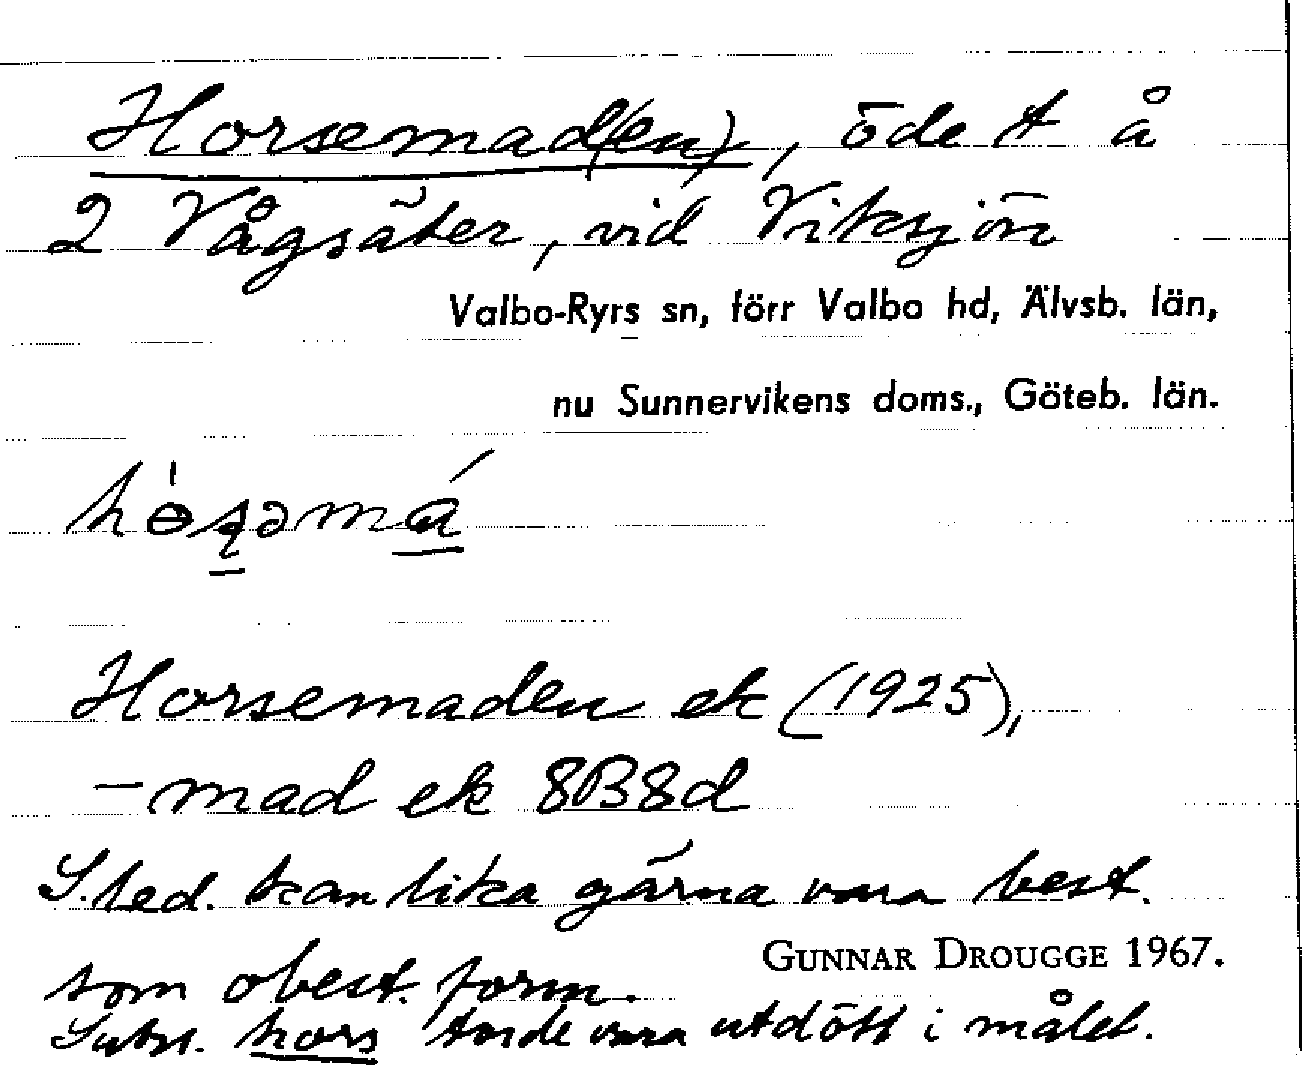 Horsemad(en), öde t å
2 Vågsäter, vid Viksjön
Valbo-Ryrs sn, förr Valbo hd, Älvsb. län,
nu Sunnervikens doms., Göteb. län.
Horsemaden ek (1925),
-mad ek 8B8d
S.led. kan lika gärna vara best.
som obest. form.
GUNNAR DROUGGE 1967.
Subst. hors torde vara utdött i målet.